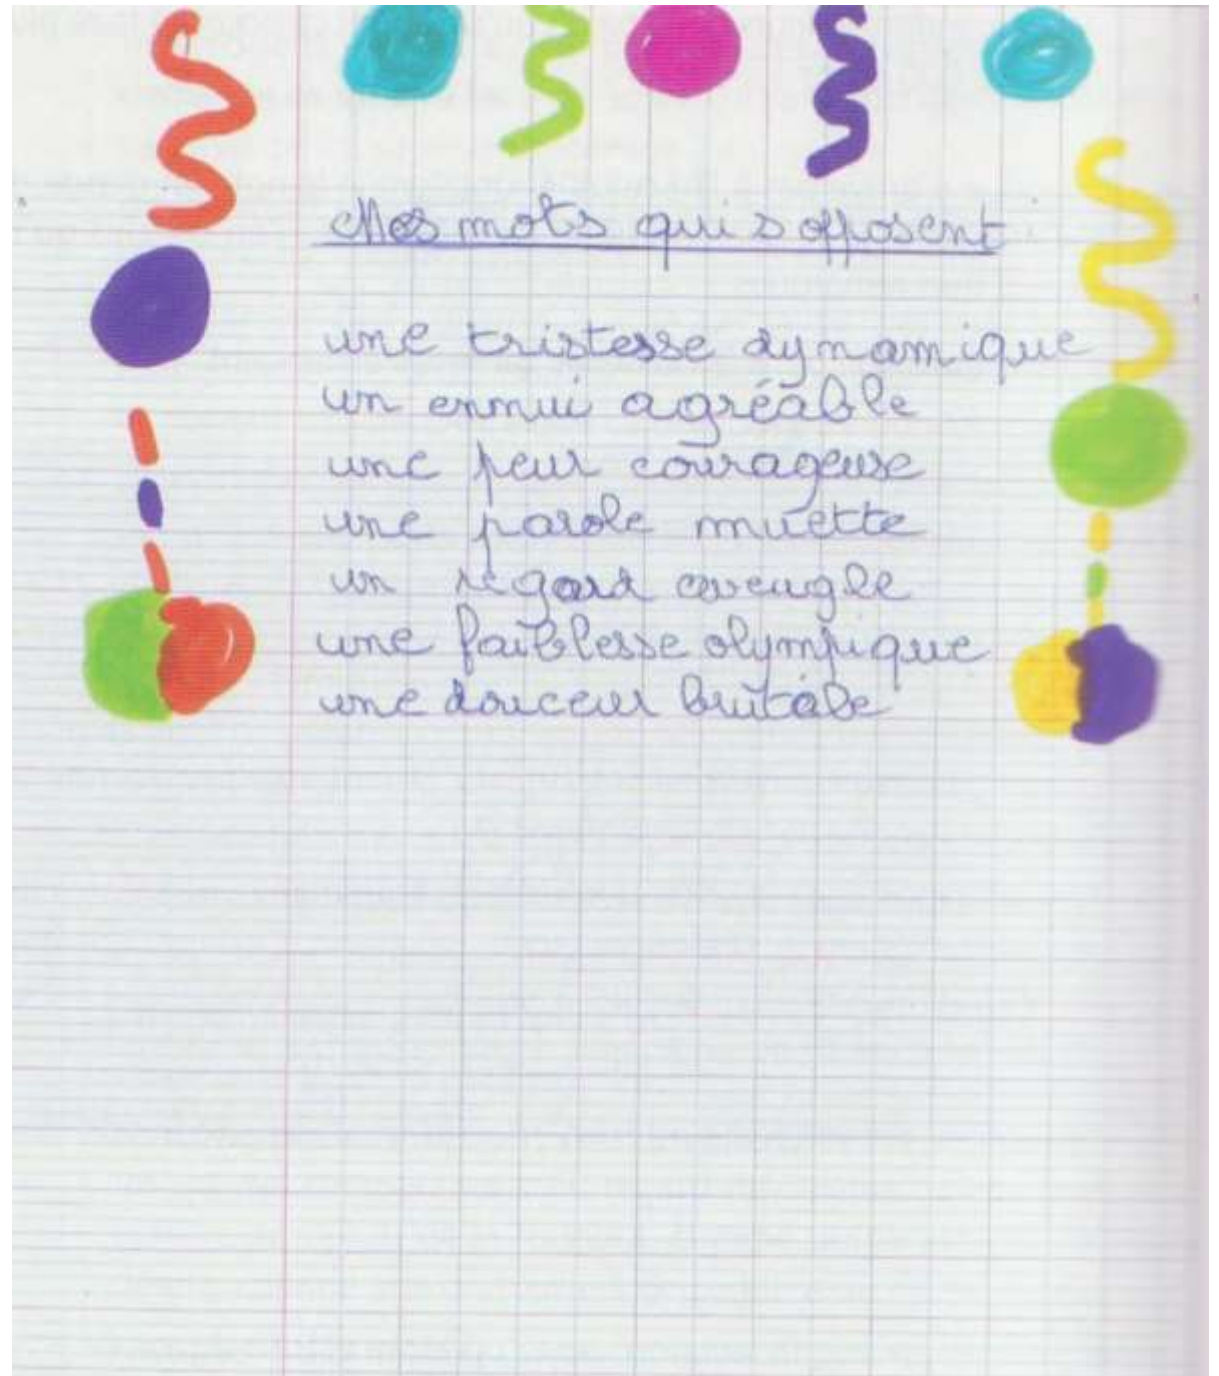 Mes mots qui s opposent :
une tristesse dynamique
un ennui agréable
une peur courageuse
une parole muette
un regard aveugle
une faiblesse olympique
une douceur brutale